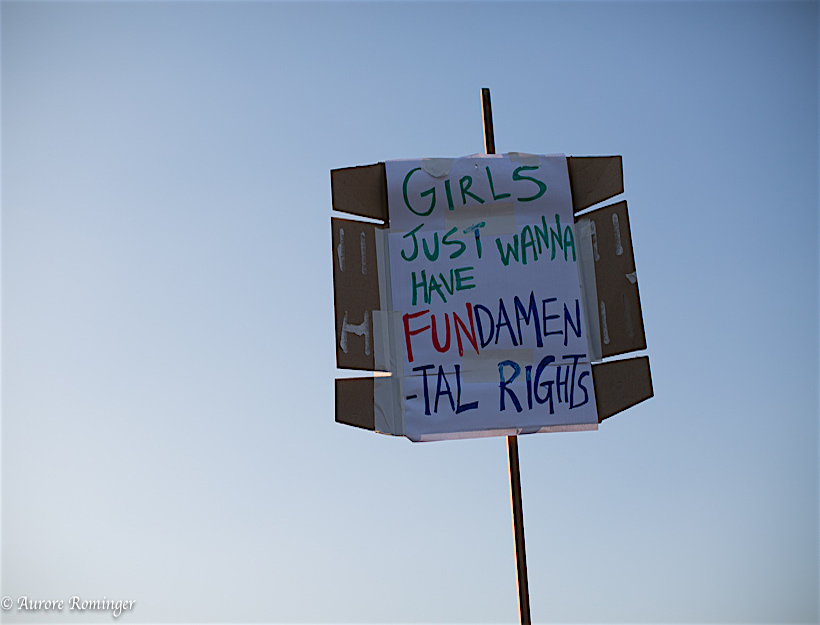 GIRLS
JUST WANNA
HAVE
FUNDAMEN
-TAL RIGHTS
© Aurore Rominger